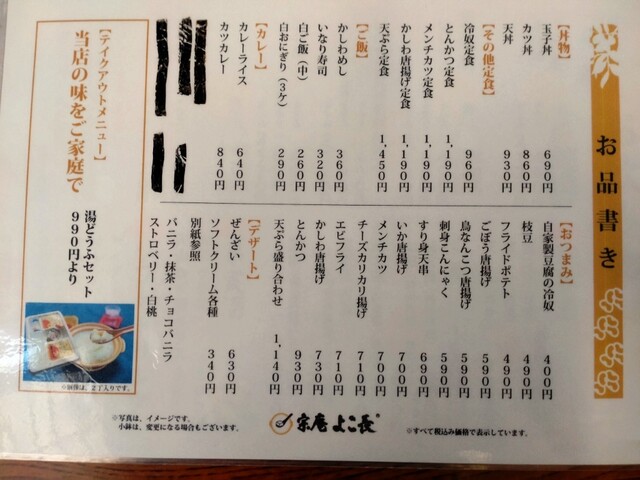 お品書き
【丼物】
玉子丼 690円
カツ丼 860円
天丼 930円
【その他定食】
冷奴定食 960円
とんかつ定食 1,190円
メンチカツ定食 1,190円
かしわ唐揚げ定食 1,190円
天ぷら定食 1,450円
【ご飯】
かしわめし 360円
いなり寿司 320円
白ご飯（中） 260円
白おにぎり（3ケ） 290円
【カレー】
カレーライス 640円
カツカレー 840円
【おつまみ】
自家製豆腐の冷奴 400円
枝豆 490円
フライドポテト 490円
ごぼう唐揚げ 590円
鳥なんこつ唐揚げ 590円
刺身こんにゃく 590円
すり身天串 690円
いか唐揚げ 700円
メンチカツ 700円
チーズカリカリ揚げ 710円
エビフライ 710円
かしわ唐揚げ 730円
とんかつ 930円
天ぷら盛り合わせ 1,140円
【デザート】
ぜんざい 630円
ソフトクリーム各種 340円
別紙参照
バニラ・抹茶・チョコバニラ
ストロベリー・白桃
【テイクアウトメニュー】
当店の味をご家庭で
湯どうふセット
990円より
※画像は、2丁入りです。
※写真は、イメージです。
小鉢は、変更になる場合もございます。
宗庵よこ長
※すべて税込み価格で表示しています。